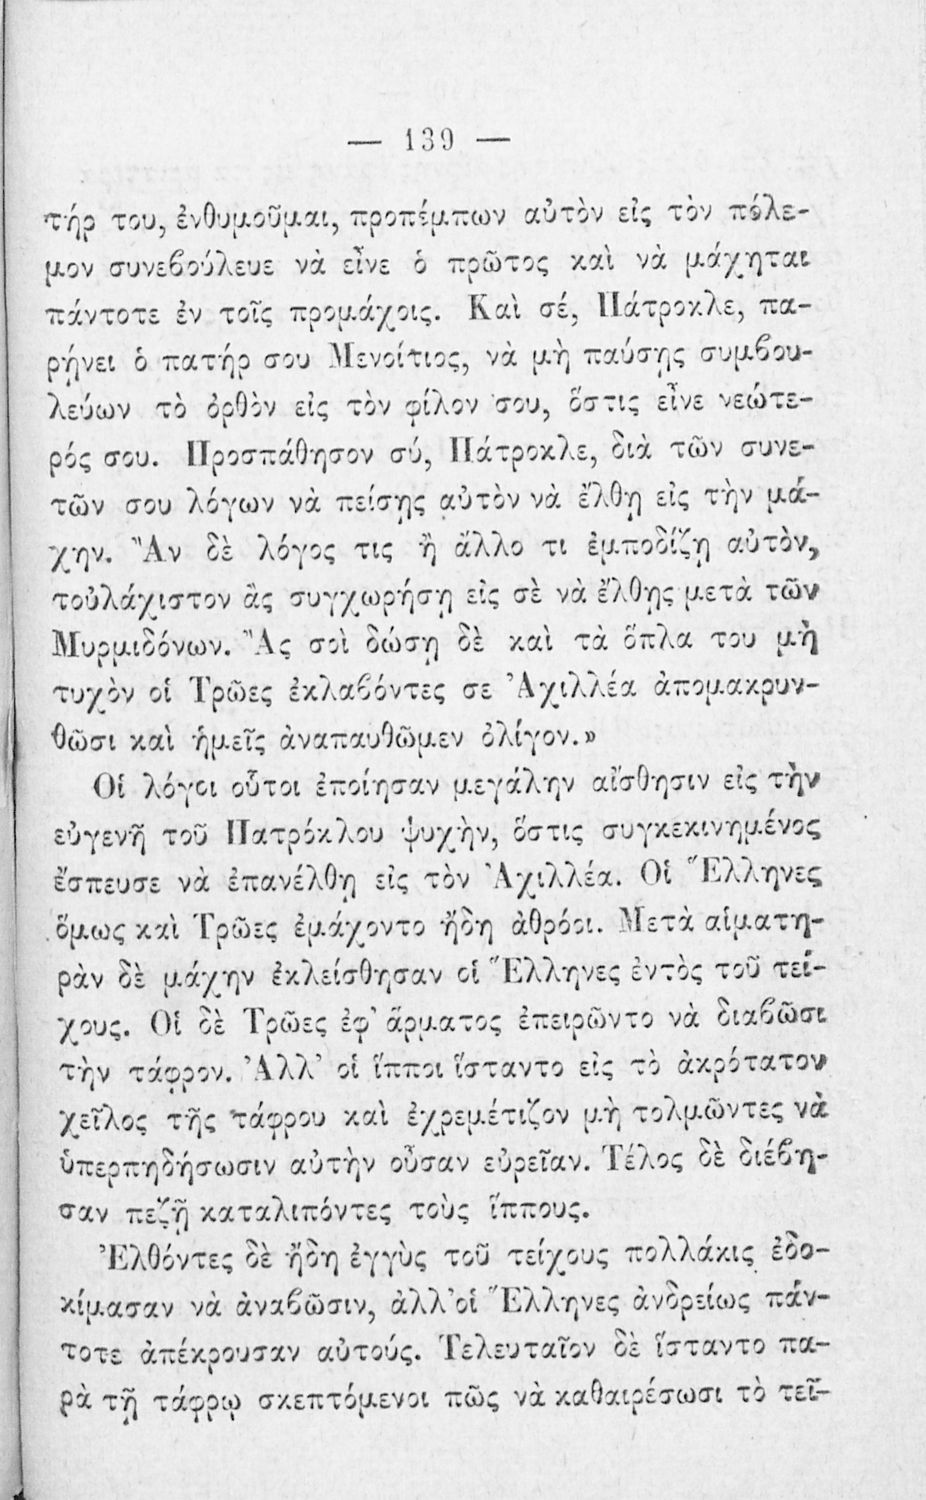 — 139 —
τήρ του, ἐνθυμοῦμαι, προπέμπων αὐτὸν εἰς τὸν πόλε-
μον συνεβούλευε νὰ εἶνε ὁ πρῶτος καὶ νὰ μάχηται
πάντοτε ἐν τοῖς προμάχοις. Καὶ σέ, Πάτροκλε, πα-
ρήνει ὁ πατήρ σου Μενοίτιος, νὰ μὴ παύσῃς συμβου-
λεύων τὸ ὀρθὸν εἰς τὸν φίλον σου, ὅστις εἶνε νεώτε-
ρός σου. Προσπάθησον σύ, Πάτροκλε, διὰ τῶν συνε-
τῶν σου λόγων νὰ πείσῃς αὐτὸν νὰ ἔλθῃ εἰς τὴν μά-
χην. Ἂν δὲ λόγος τις ἢ ἄλλο τι ἐμποδίζῃ αὐτὸν,
τοὐλάχιστον ἂς συγχωρήσῃ εἰς σὲ νὰ ἔλθῃς μετὰ τῶν
Μυρμιδόνων. Ἂς σοὶ δώσῃ δὲ καὶ τὰ ὅπλα του μὴ
τυχὸν οἱ Τρῶες ἐκλαβόντες σε Ἀχιλλέα ἀπομακρυν-
θῶσι καὶ ἡμεῖς ἀναπαυθῶμεν ὀλίγον.»
Οἱ λόγοι οὗτοι ἐποίησαν μεγάλην αἴσθησιν εἰς τὴν
εὐγενῆ τοῦ Πατρόκλου ψυχὴν, ὅστις συγκεκινημένος
ἔσπευσε νὰ ἐπανέλθῃ εἰς τὸν Ἀχιλλέα. Οἱ Ἕλληνες
ὅμως καὶ Τρῶες ἐμάχοντο ἤδη ἀθρόοι. Μετὰ αἱματη-
ρὰν δὲ μάχην ἐκλείσθησαν οἱ Ἕλληνες ἐντὸς τοῦ τεί-
χους. Οἱ δὲ Τρῶες ἐφ’ ἅρματος ἐπειρῶντο νὰ διαβῶσι
τὴν τάφρον. Ἀλλ’ οἱ ἵπποι ἵσταντο εἰς τὸ ἀκρότατον
χεῖλος τῆς τάφρου καὶ ἐχρεμέτιζον μὴ τολμῶντες νὰ
ὑπερπηδήσωσιν αὐτὴν οὖσαν εὐρεῖαν. Τέλος δὲ διέβη-
σαν πεζῇ καταλιπόντες τοὺς ἵππους.
Ἐλθόντες δὲ ἤδη ἐγγὺς τοῦ τείχους πολλάκις ἐδο-
κίμασαν νὰ ἀναβῶσιν, ἀλλ’ οἱ Ἕλληνες ἀνδρείως πάν-
τοτε ἀπέκρουσαν αὐτούς. Τελευταῖον δὲ ἵσταντο πα-
ρὰ τῇ τάφρῳ σκεπτόμενοι πῶς νὰ καθαιρέσωσι τὸ τεῖ-